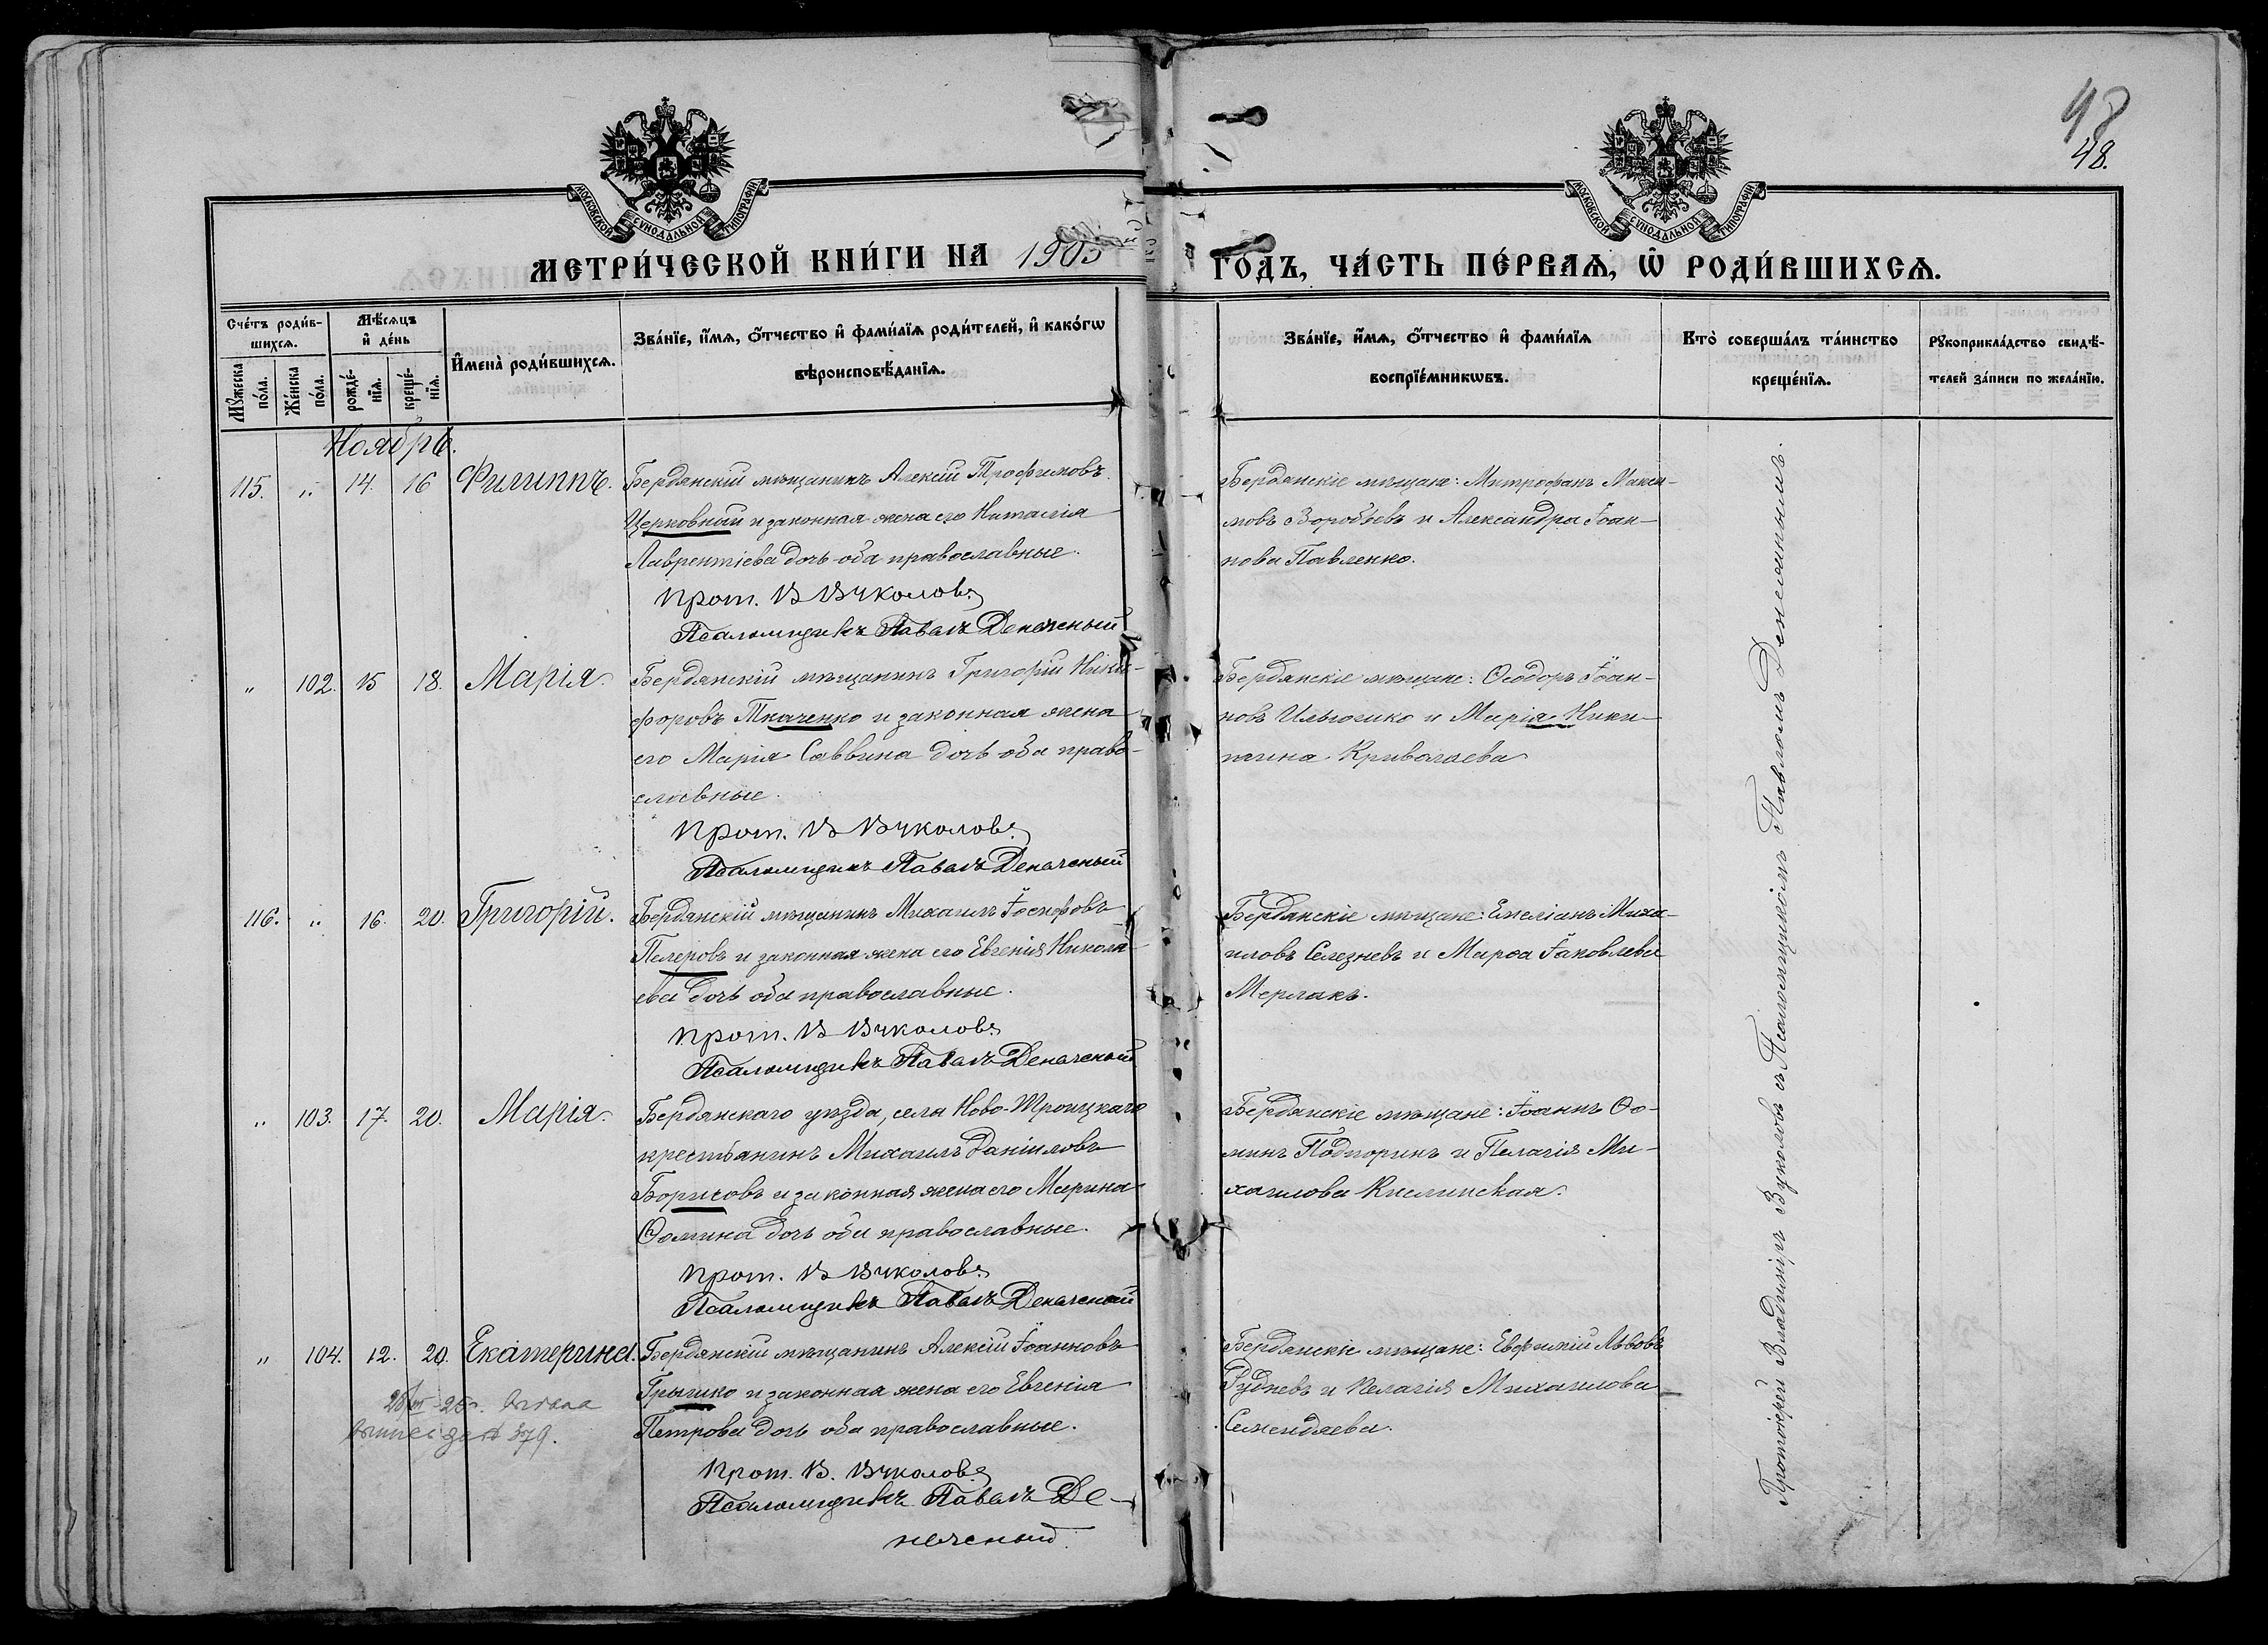 48
48.
МОСКОВСКОЙ СУНОДАЛЬНОЙ ТИПОГРАФІИ
МОСКОВСКОЙ СУНОДАЛЬНОЙ ТИПОГРАФІИ
МЕТРИ́ЧЕСКОЙ КНИ́ГИ НА 1903 ГО́ДЪ, ЧА́СТЬ ПЕ́РВАѦ, Ѡ РОДИ́ВШИХСѦ.
Сче́тъ роди́в-
шихсѧ.
Мѣ́сѧцъ
и҆ де́нь
Мꙋ́жеска
по́ла.
Же́нска
по́ла.
рожде́-
нїѧ.
креще́-
нїѧ.
И҆мена̀ роди́вшихсѧ.
Зва́нїе, и҆́мѧ, ѻ҆́тчество и҆ фами́лїѧ роди́телей, и҆ како́гѡ
вѣроисповѣ́данїѧ.
Зва́нїе, и҆́мѧ, ѻ҆́тчество и҆ фами́лїѧ
воспрїе́мникѡвъ.
Кто̀ соверша́лъ та́инство
креще́нїѧ.
Рꙋкоприкла́дство свидѣ́-
телей за́писи по жела́нїю.
Ноябрь.
115. „ 14. 16 Филиппъ. Бердянскій мѣщанинъ Алексій Трофимовъ
Церковный и законная жена его Наталія
Лаврентіева дочь оба православные.
Прот. В Вуколовъ
Псаломщикъ Павелъ
Бердянскіе мѣщане: Митрофанъ Макси-
мовъ Воробьевъ и Александра Іоан-
нова Павленко.
„ 102. 15 18. Марія. Бердянскій мѣщанинъ Григорій Ники-
форовъ Ткаченко и законная жена
его Марія Саввина дочь оба право-
славные.
Прот. В Вуколовъ
Псаломщикъ Павелъ
Бердянскіе мѣщане: Ѳеодоръ Іоан-
новъ и Марія Ники-
тина
116. „ 16. 20. Григорій. Бердянскій мѣщанинъ Михаилъ Іосифовъ
и законная жена его Евгенія Никола-
ева дочь оба православные.
Прот. В Вуколовъ
Псаломщикъ Павелъ
Бердянскіе мѣщане: Емеліанъ Миха-
иловъ Селезневъ и Марѳа Іаковлева
„ 103. 17. 20. Марія. Бердянскаго уѣзда, села Ново-Троицкаго
крестьянинъ Михаилъ Даніиловъ
Борисовъ и законная жена его Марина
Ѳомина дочь оба православные.
Прот. В Вуколовъ
Псаломщикъ Павелъ
Бердянскіе мѣщане: Іоаннъ Ѳо-
минъ Подпоринъ и Пелагія Ми-
хаилова Кислинская.
„ 104. 12. 20. Екатерина. Бердянскій мѣщанинъ Алексій Іоанновъ
Грышко и законная жена его Евгенія
Петрова дочь оба православные.
Прот. В. Вуколовъ
Псаломщикъ Павелъ
за № 379.
Бердянскіе мѣщане: Евфимій Львовъ
Рудневъ и Пелагія Михаилова
Семендяева.
Протоіерей Владиміръ Вуколовъ съ Псаломщикомъ Павломъ